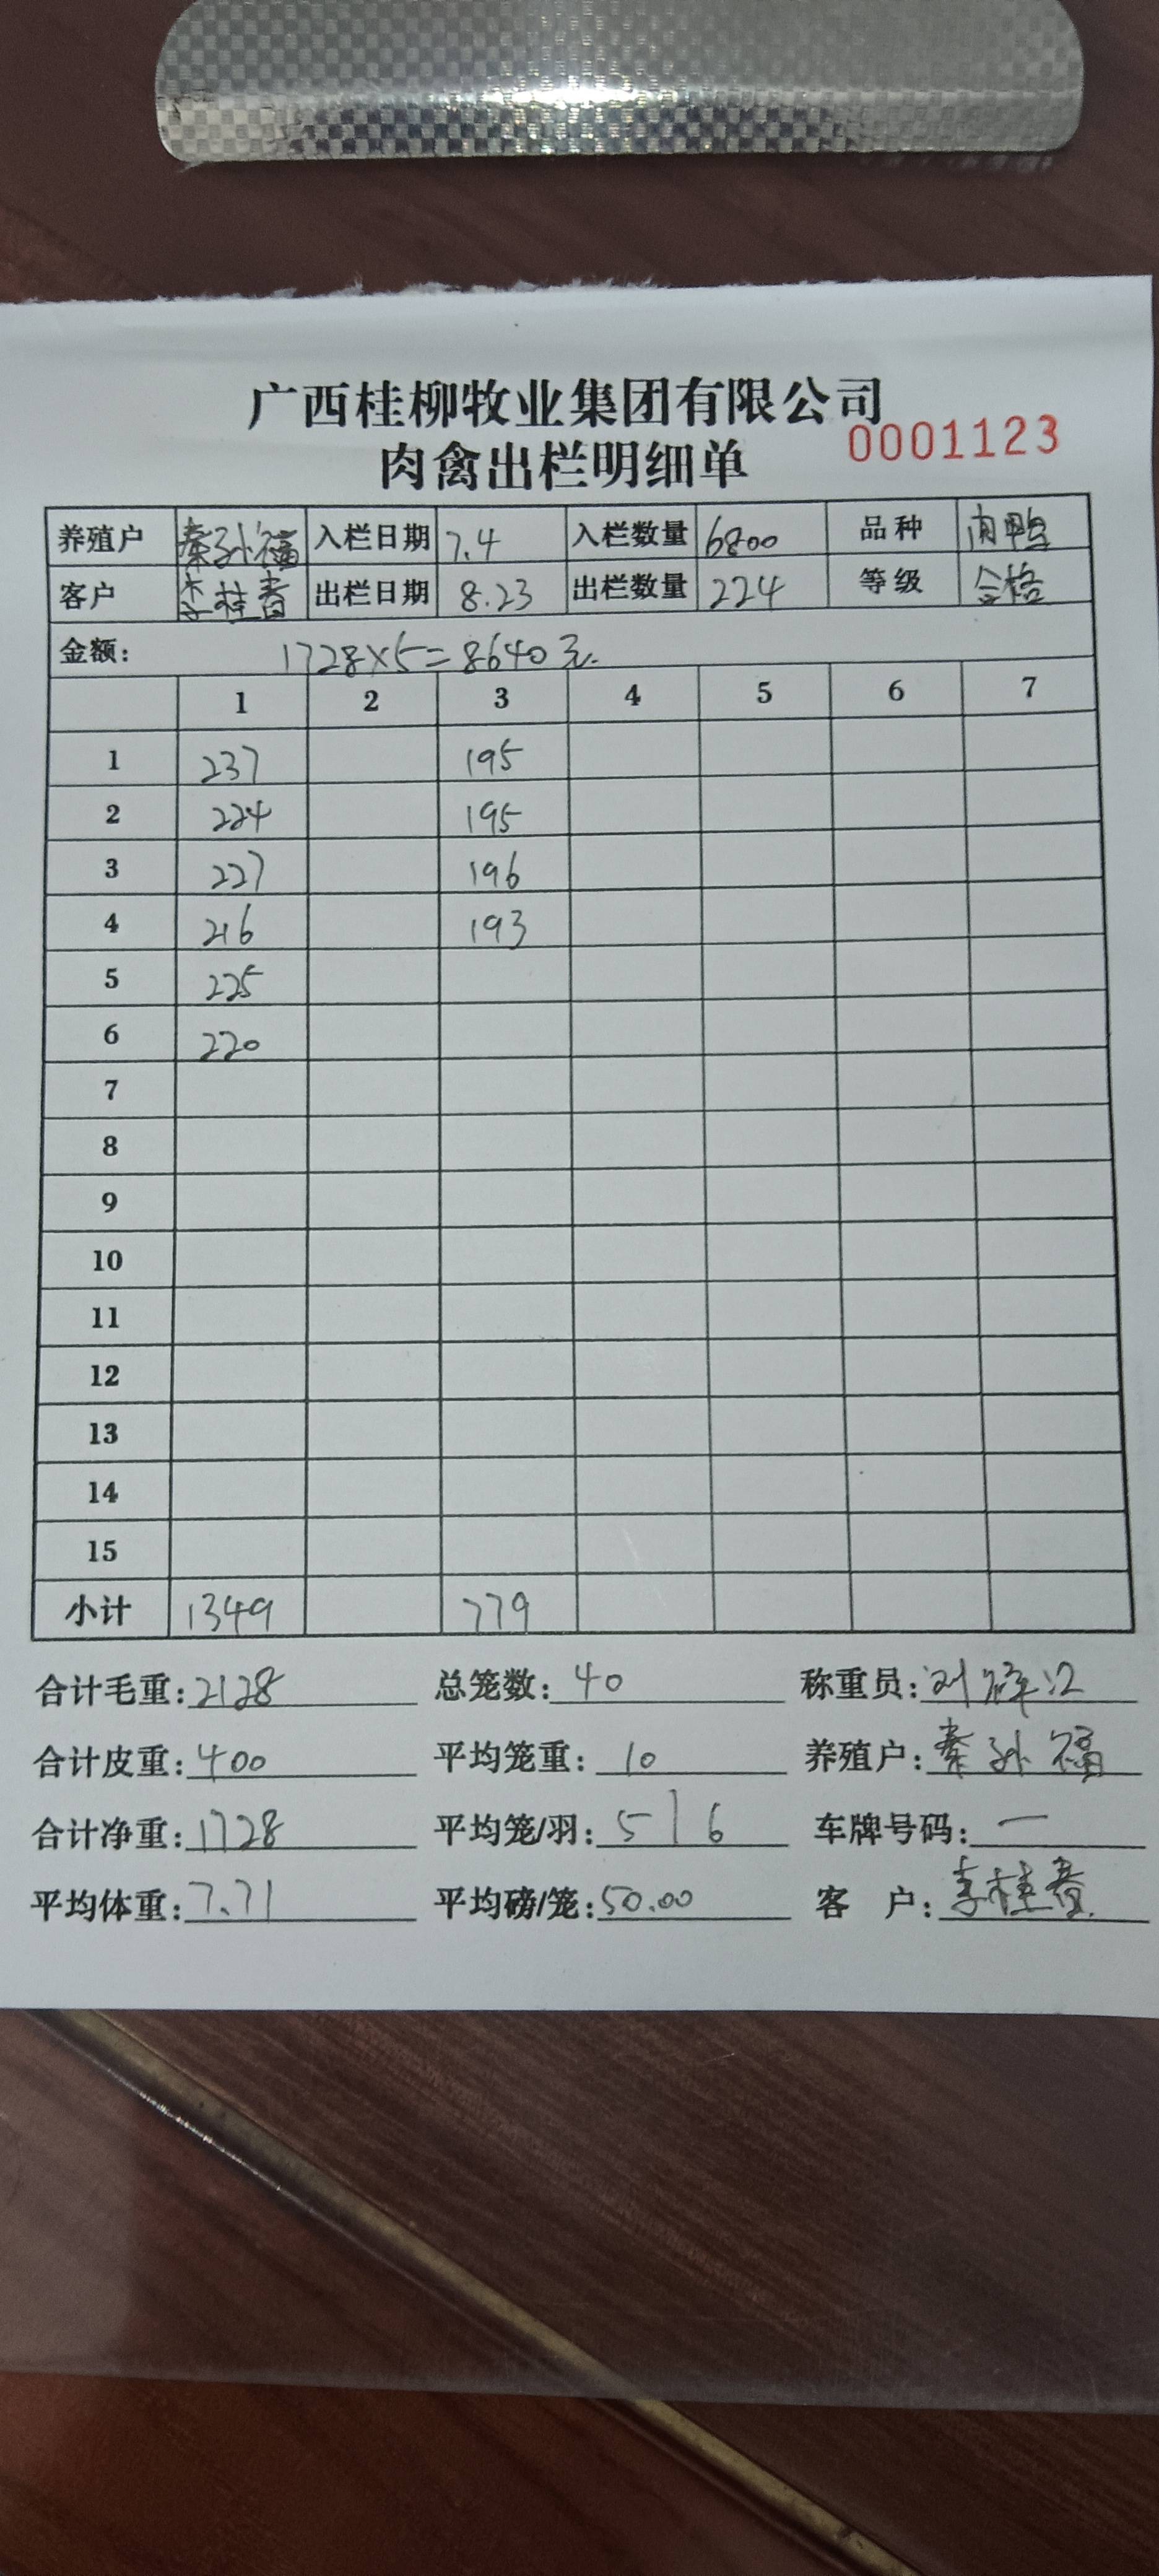 广西桂柳牧业集团有限公司
肉禽出栏明细单 0001123
养殖户 秦孙福 入栏日期 7.4 入栏数量 6800 品种 肉鸭
客户 李桂春 出栏日期 8.23 出栏数量 224 等级 合格
金额: 1728×5=8640元.
1 2 3 4 5 6 7
1 237 195
2 224 195
3 227 196
4 216 193
5 225
6 220
7
8
9
10
11
12
13
14
15
小计 1349 779
合计毛重:2128 总笼数:40 称重员:刘
合计皮重:400 平均笼重:10 养殖户:秦孙福
合计净重:1728 平均笼/羽:5 | 6 车牌号码:一
平均体重:7.71 平均磅/笼:50.00 客 户:李桂春